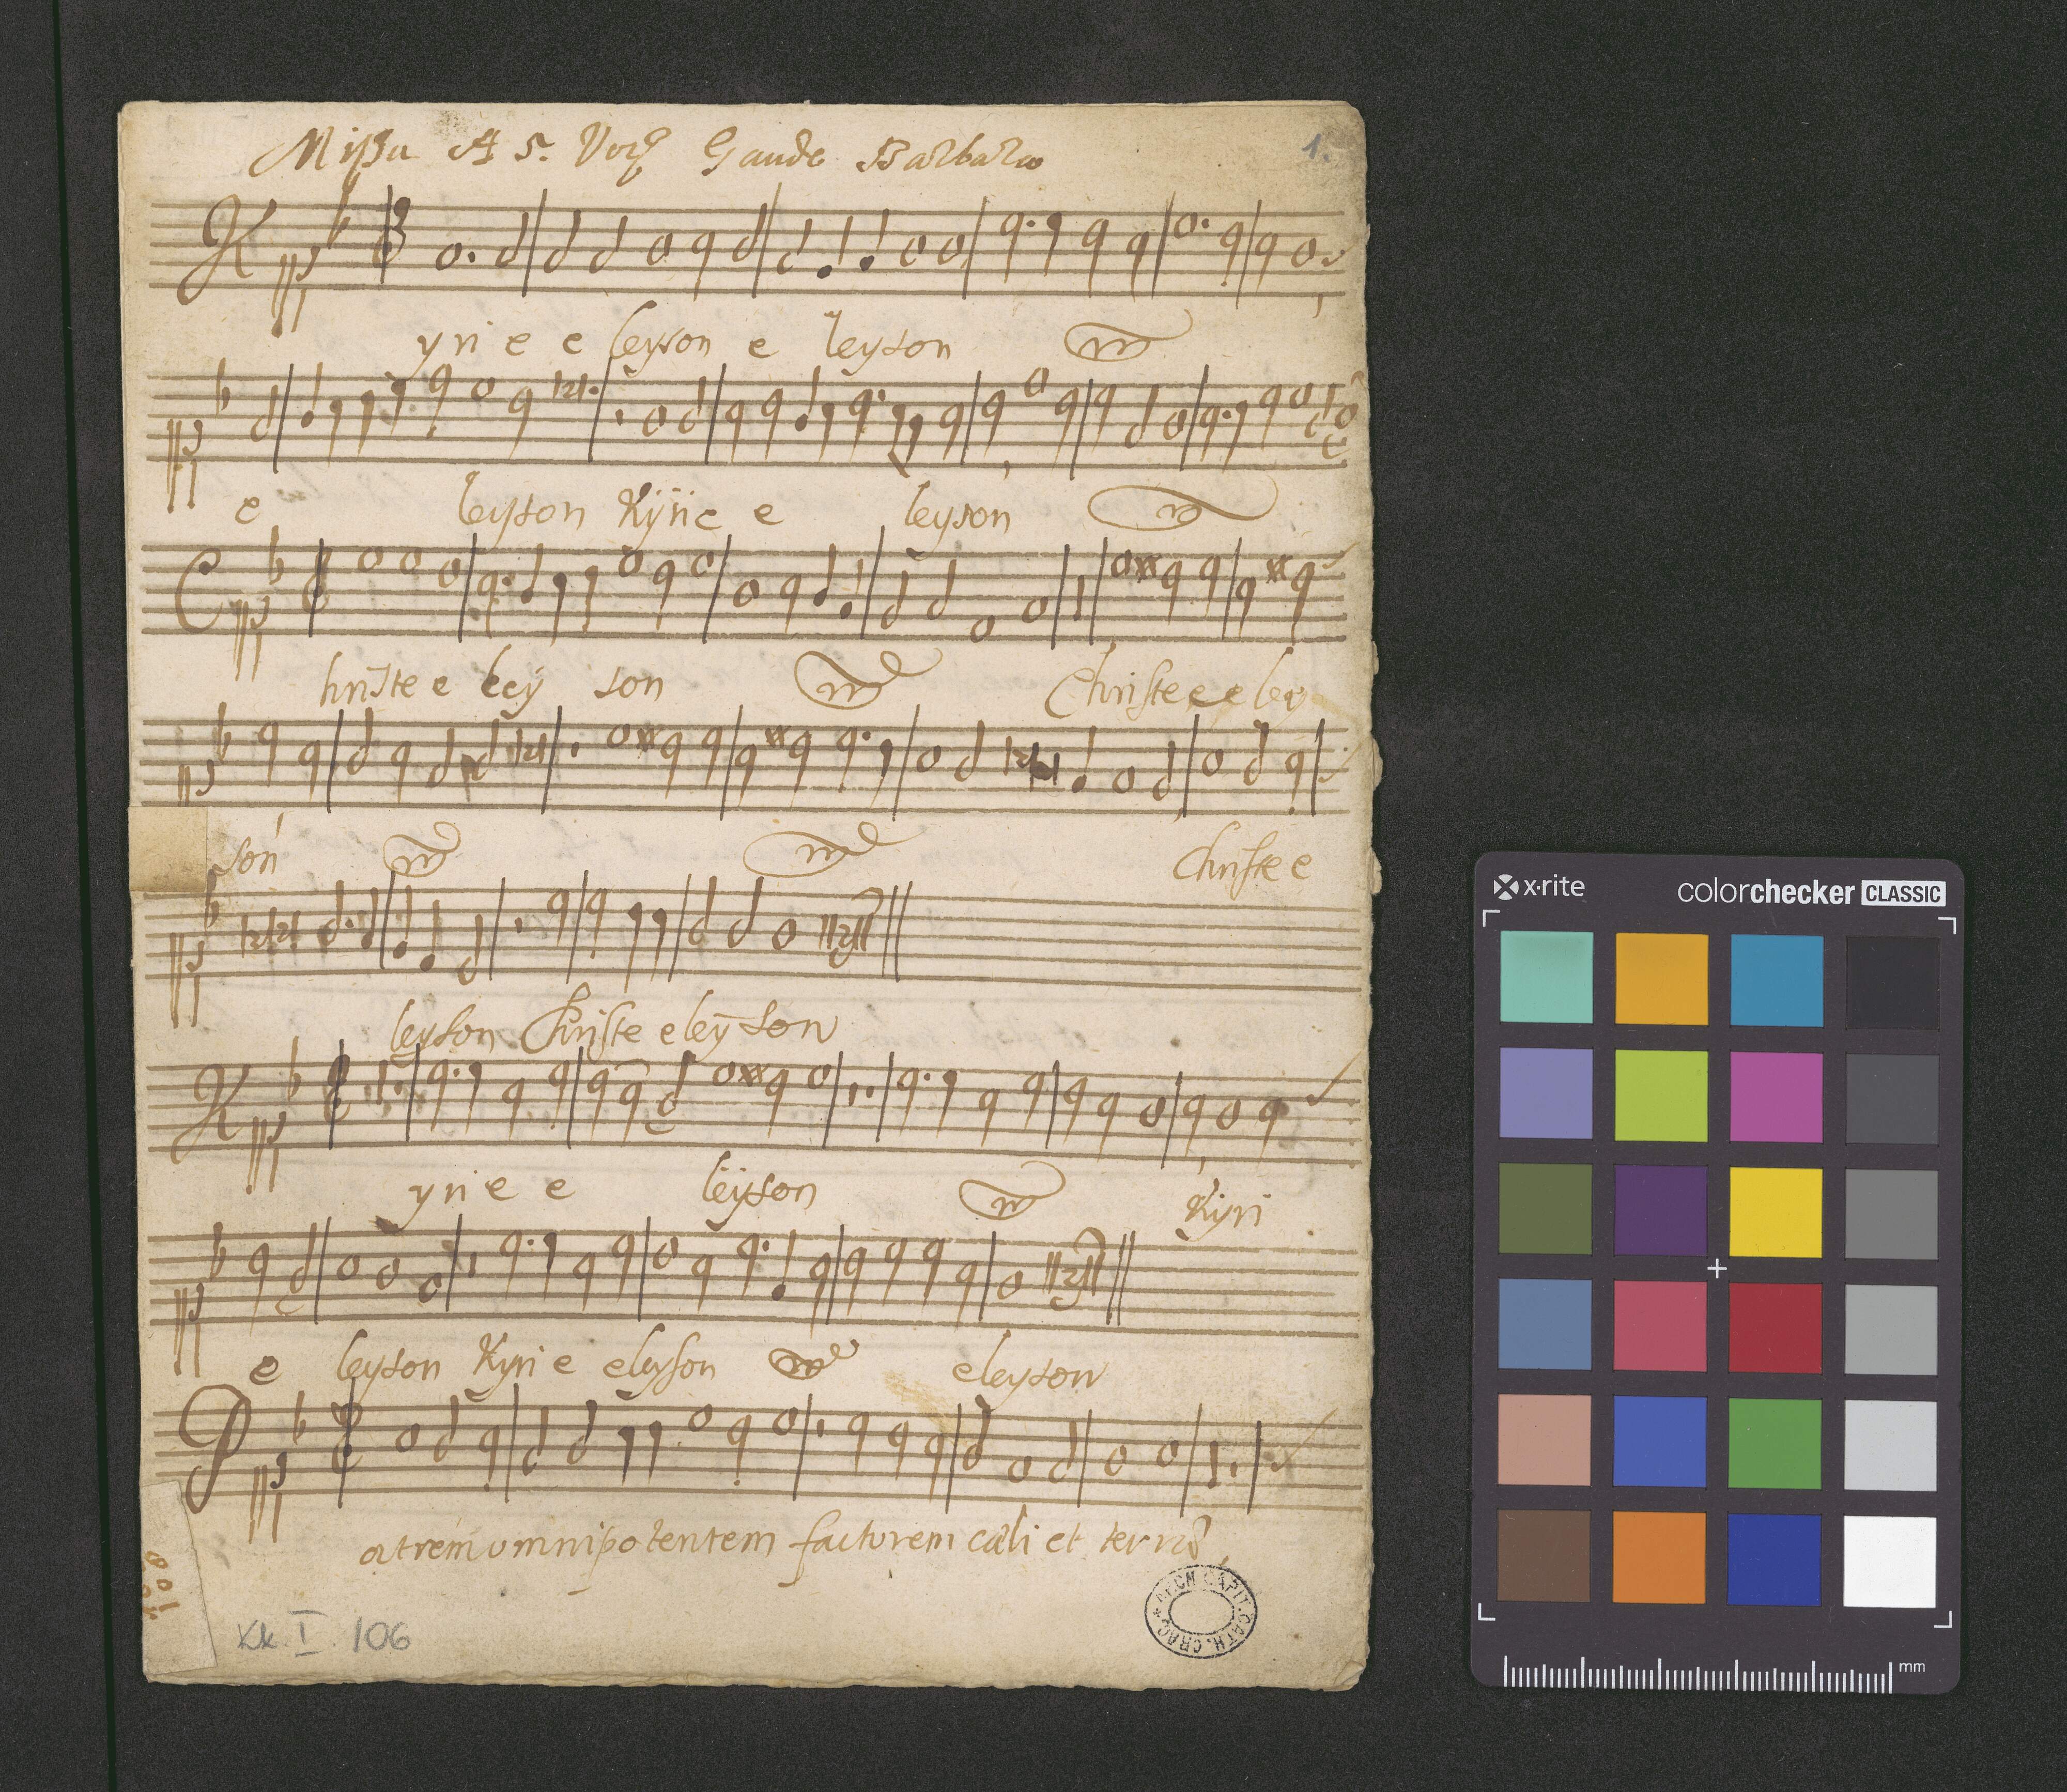 Missa A 5. Voc Gaude Barbara
1.
K
yri e e leyson e leyson
e leyson Kÿrie e leyson
C
hriste e leÿ son Christe e e ley
son Christe e
leyson Christe eleyson
K
yri e e leÿson Kyri
e leyson Kyri e eleyson eleyson
P
atrem omnipotentem factorem cæli et terræ
Kk. I. 106
001
ARCH. CAPIT. CATH. CRAC.
x·rite
colorchecker CLASSIC
mm